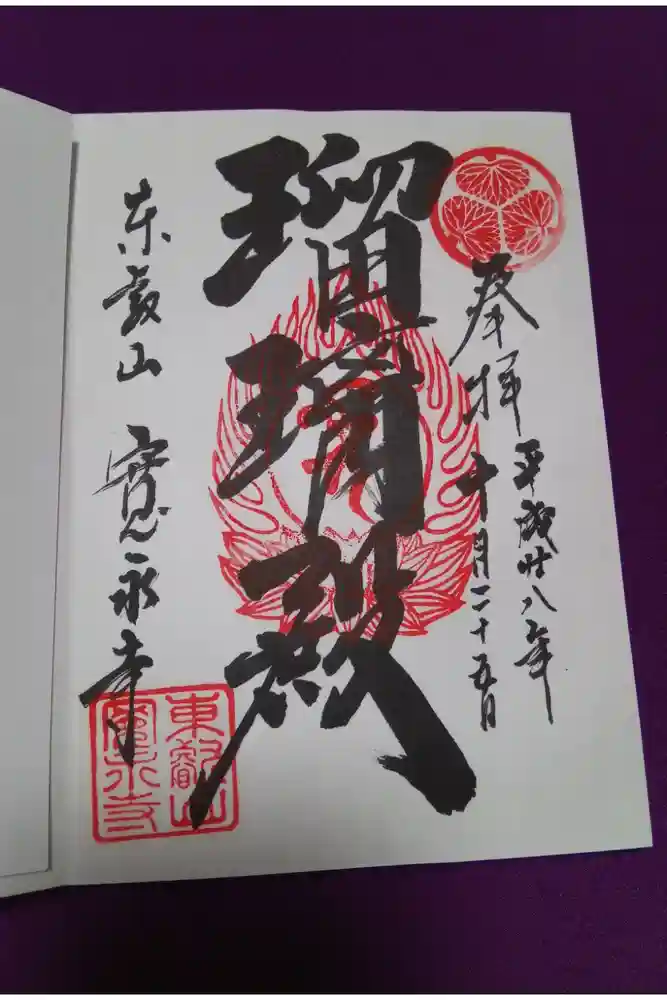 奉拝
平成廿八年
十月二十五日
瑠璃殿
东叡山 寛永寺
東叡山
寛永寺